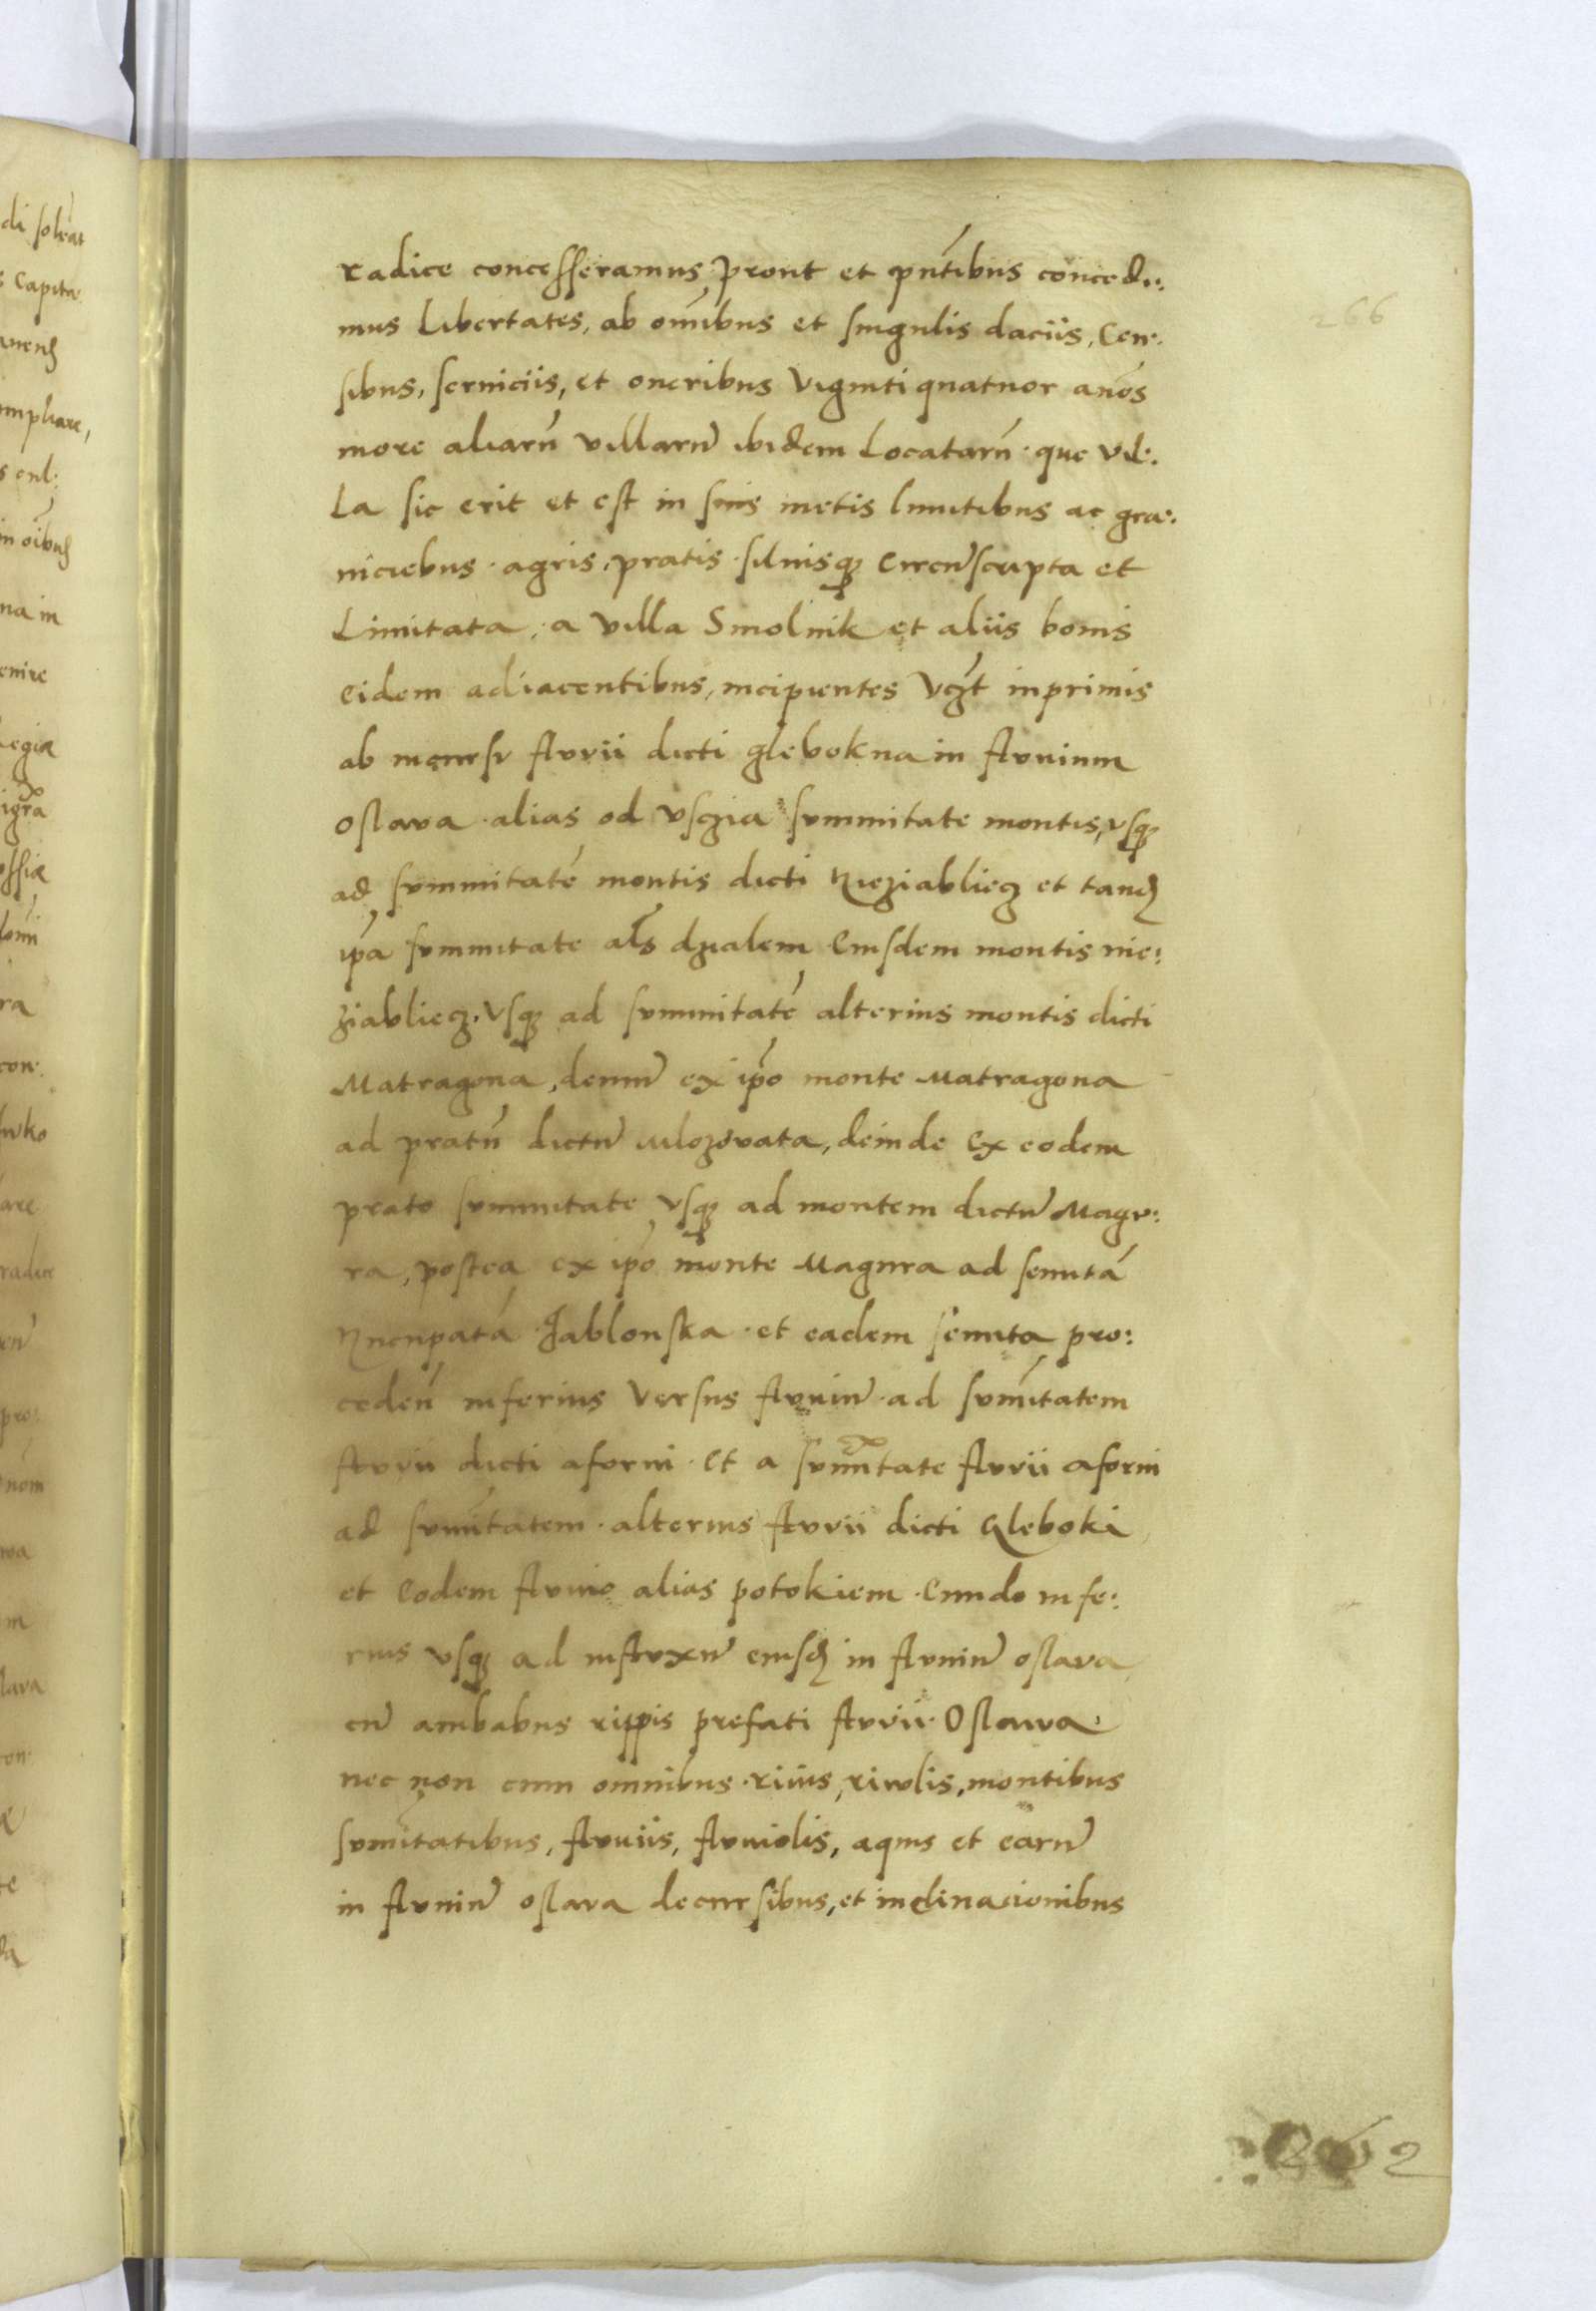 266
radice concesseramus prout et pñtibus concedi:
mus Libertates, ab omībus et singulis daciis, Cen:
sibus, seruiciis, et oneribus Viginti quatuor anōs
more aliarū villarū ibidem Locatarū. que vil:
La sic erit et est in suis metis limitibus ac gra:
niciebus. agris, pratis. siluisq₃ Circūscripta et
Limitata, a villa Smolnik et aliis bonis
eidem adiacentibus, incipientes Vcz̃t inprimis
ab incursv flvvii dicti glebokna in flvuium
oslava. alias od vsczia svmmitate montis, vsq₃
ad svmmitatē montis dicti Nieziabliecz et tandē
ip̄a svmmitate al̃s dzialem Eiusdem montis nie:
ziabliecz. Vsq₃ ad svmmitatē alterius montis dicti
Matragona, demū ex ip̄o monte Matragona
ad pratū dictū Mlozovata, deinde Ex eodem
prato svmmitate vsq₃ ad montem dictū Magv:
ra, postea ex ip̄o monte Magura ad semitā
Nuncupatā Jablonska. et eadem semita pro:
cedeñ inferius Versus flvuiū. ad svm̄itatem
flvvii dicti aforni. Et a svm̄itate flvvii aforni
ad svm̄itatem. alterius flvvii dicti Gleboki
et Eodem flvuio alias potokiem. Eundo infe:
rius vsq₃ ad inflvxū eiusdē in flvuiū oslava
cū ambabus rippis prefati flvvii. Oslawa.
nec non cum omnibus. riuis, rivolis, montibus
svm̄itatibus, flvuiis, flvuiolis, aquis et earū
in flvuiū oslava decursibus, et inclinacionibus
262